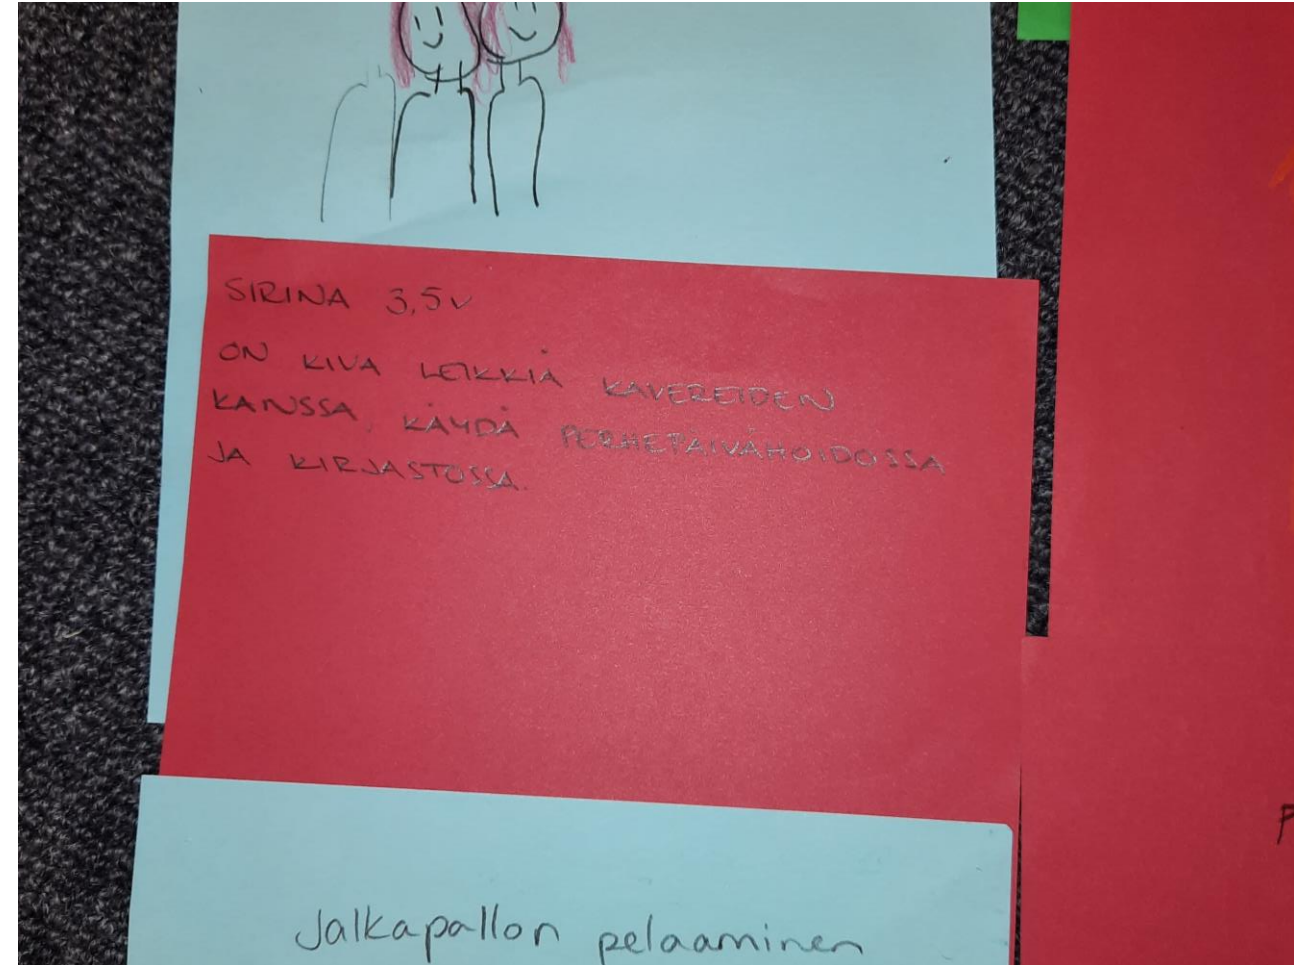 SIRINA 3,5v
ON KIVA LEIKKIÄ KAVEREIDEN
KANSSA, KÄYDÄ PERHEPÄIVÄHOIDOSSA
JA KIRJASTOSSA.
Jalkapallon pelaaminen